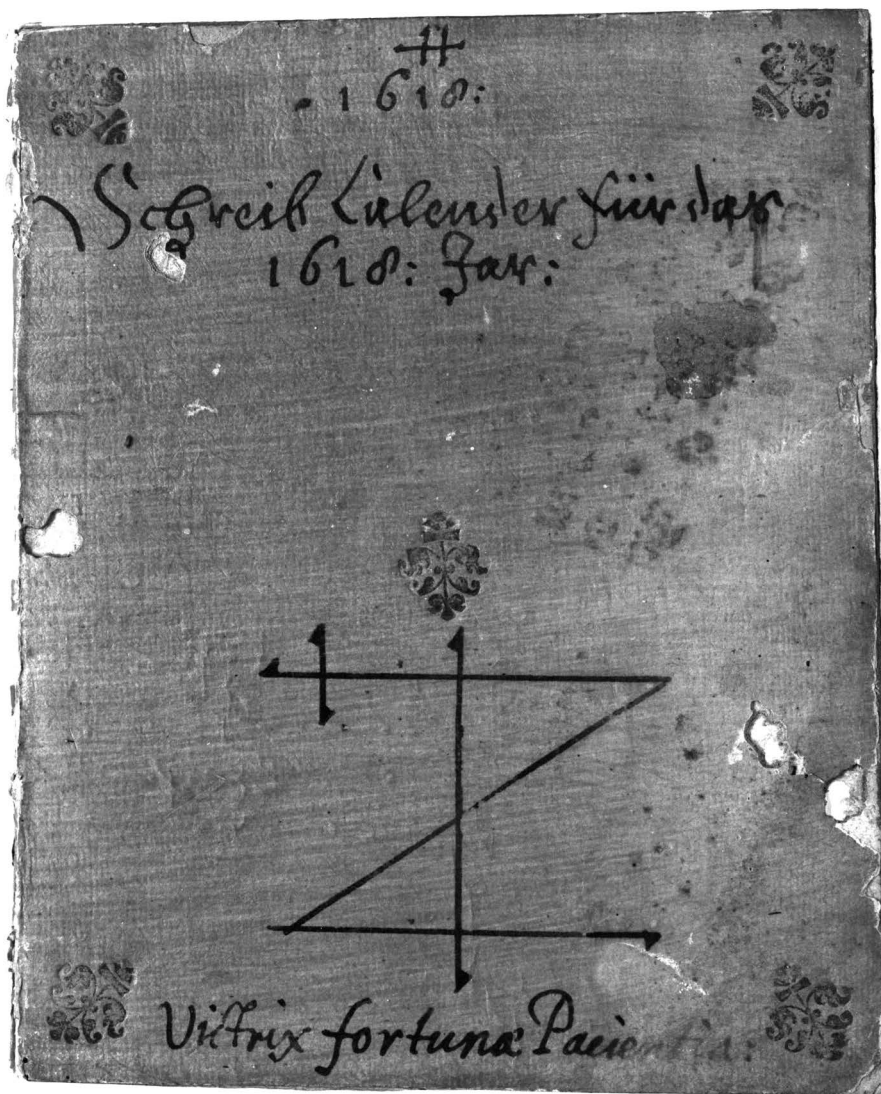 1618:
Schreib Calender für das
1618: Jar:
Victrix fortunæ Pacientia: